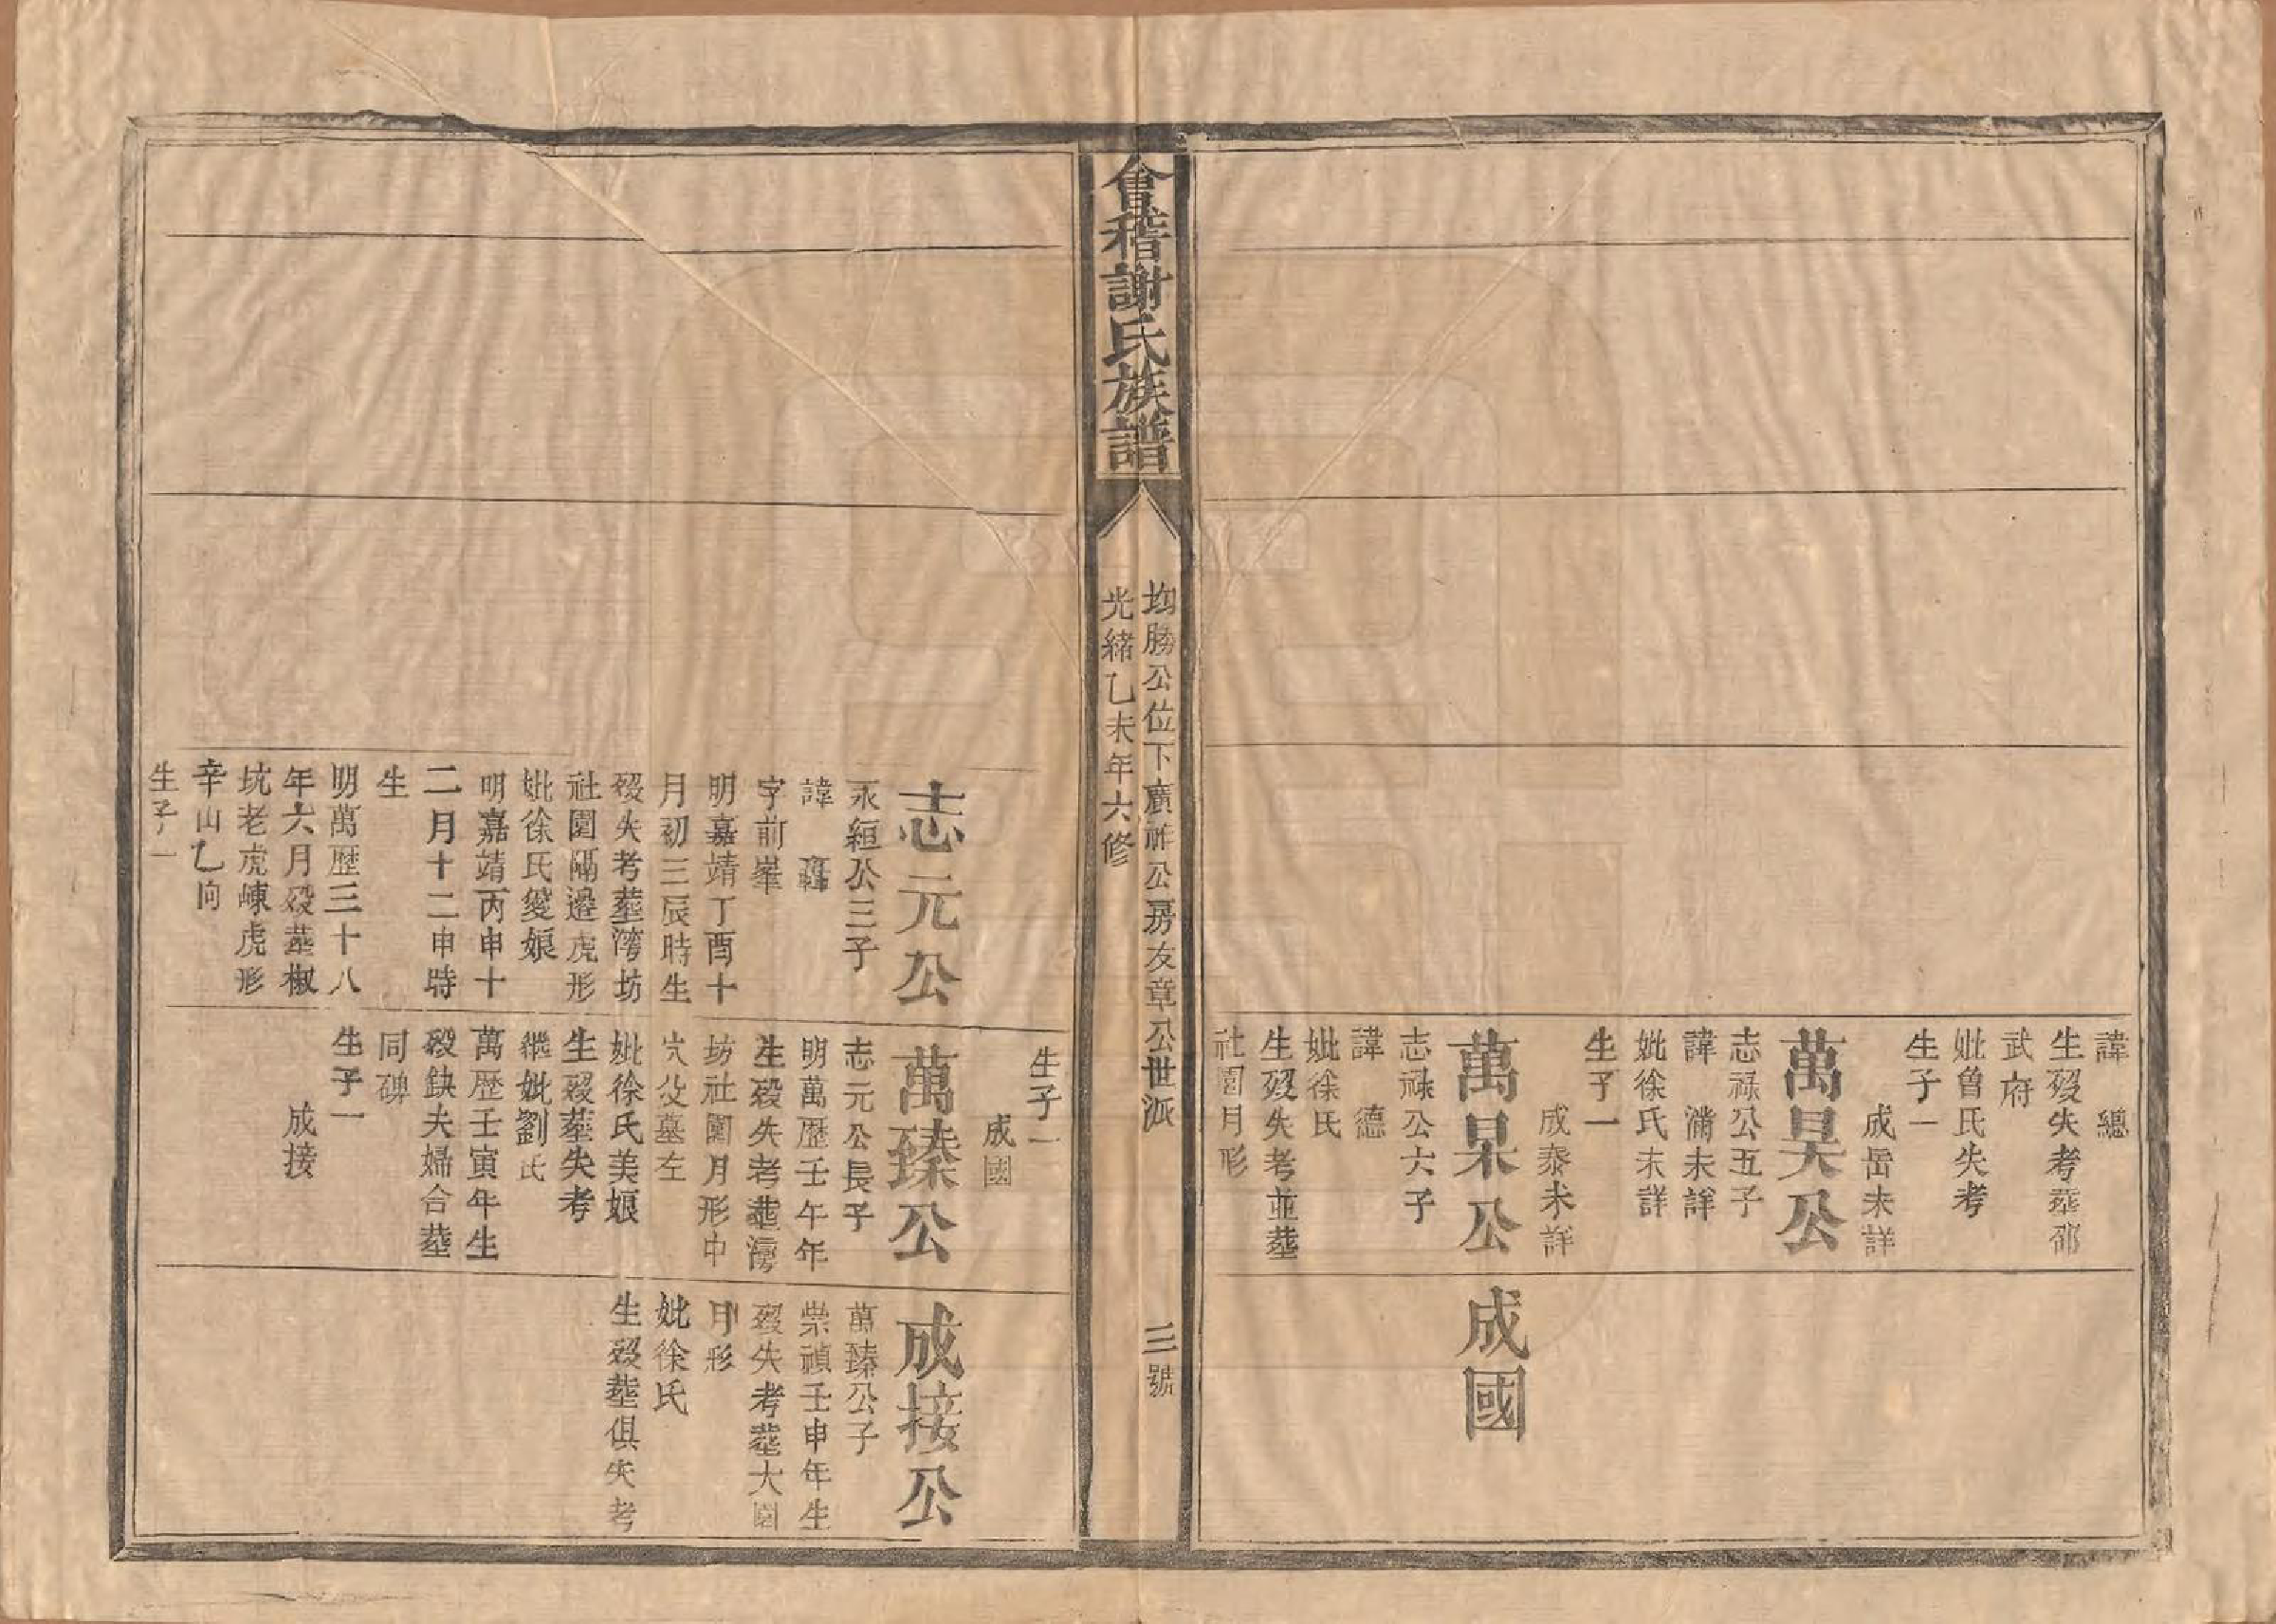 諱　總
生歿失考塟邵
武府
妣曾氏失考
生子一
成岳未詳
萬昊公
志祿公五子
諱　濟未詳
妣徐氏未詳
生子一
成泰未詳
萬杲公
志祿公六子
諱　德
妣徐氏
生歿失考並塟
社園月形
成國
會稽謝氏族譜
均勝公位下廣祚公房友章公世派
三號
光緒乙未年六修
志元公
永絙公三子
諱
字前峯
明嘉靖丁酉十
月初三辰時生
歿失考塟湾坊
社園隔邉虎形
妣徐氏愛娘
明嘉靖丙申十
二月十二申時
生
明萬歷三十八
年六月歿塟椒
坑老虎崠虎形
辛山乙向
生子一
生子一
成國
萬臻公
志元公長子
明萬歷壬午年
生歿失考塟湾
坊社園月形中
穴父墓左
妣徐氏美娘
生歿塟失考
繼妣劉氏
萬歷壬寅年生
歿缺夫婦合塟
同碑
生子一
成接
成接公
萬臻公子
崇禎壬申年生
歿失考塟大園
月形
妣徐氏
生歿塟俱失考